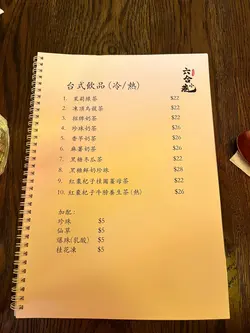 六合院
台式飲品(冷/熱)
1. 茉莉綠茶 $22
2. 凍頂烏龍茶 $22
3. 招牌奶茶 $22
4. 珍珠奶茶 $26
5. 香芋奶茶 $26
6. 麻薯奶茶 $26
7. 黑糖冬瓜茶 $22
8. 黑糖鮮奶珍珠 $28
9. 紅棗杞子桂圓薑母茶 $22
10. 紅棗杞子牛蒡養生茶(熱) $26
加配:
珍珠 $5
仙草 $5
爆珠(乳酸) $5
桂花凍 $5